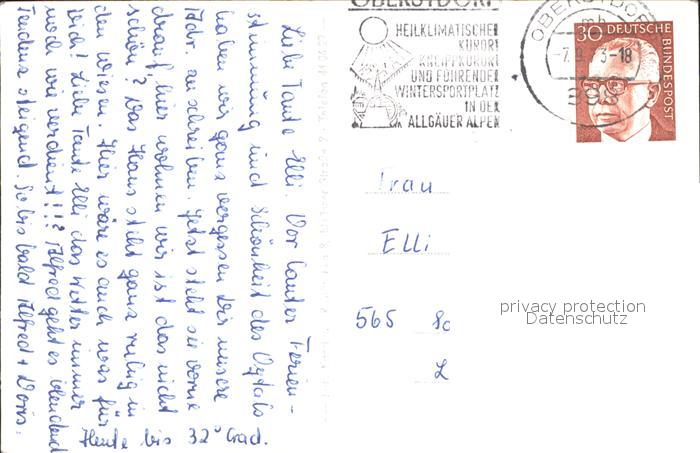 OBERSTDORF
HEILKLIMATISCHER
KURORT
KNEIPPKURORT
UND FÜHRENDER
WINTERSPORTPLATZ
IN DEN
ALLGÄUER ALPEN
OBERSTDORF
mb
-7.9.73-18
898
30 DEUTSCHE
BUNDESPOST
Liebe Tante Elli. Vor lauter Ferien-
stimmung und Schönheit des Oytals
haben wir ganz vergessen Dir unsere
Adr. zu schreiben. Jetzt steht sie vorne
drauf, hier wohnen wir ist das nicht
schön? Das Haus steht ganz ruhig in
den Wiesen. Hier wäre es auch was für
Dich! Liebe Tante Elli das Wetter immer
noch wie verdient!!! Alfred geht es blendend
Tendenz steigend. So bis bald Alfred + Doris.
Heute bis 32° Grad.
Frau
Elli
565 So
privacy protection
Datenschutz